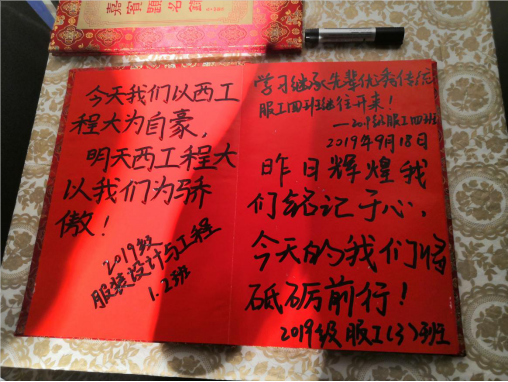 嘉賓題名錄
今天我们以西工
程大为自豪，
明天西工程大
以我们为骄
傲！
2019级
服装设计与工程
1.2班
学习继承先辈优秀传统
服工四班继往开来！
——2019级服工四班
2019年9月18日
昨日辉煌我
们铭记于心，
今天的我们将
砥砺前行！
2019级服工(3)班